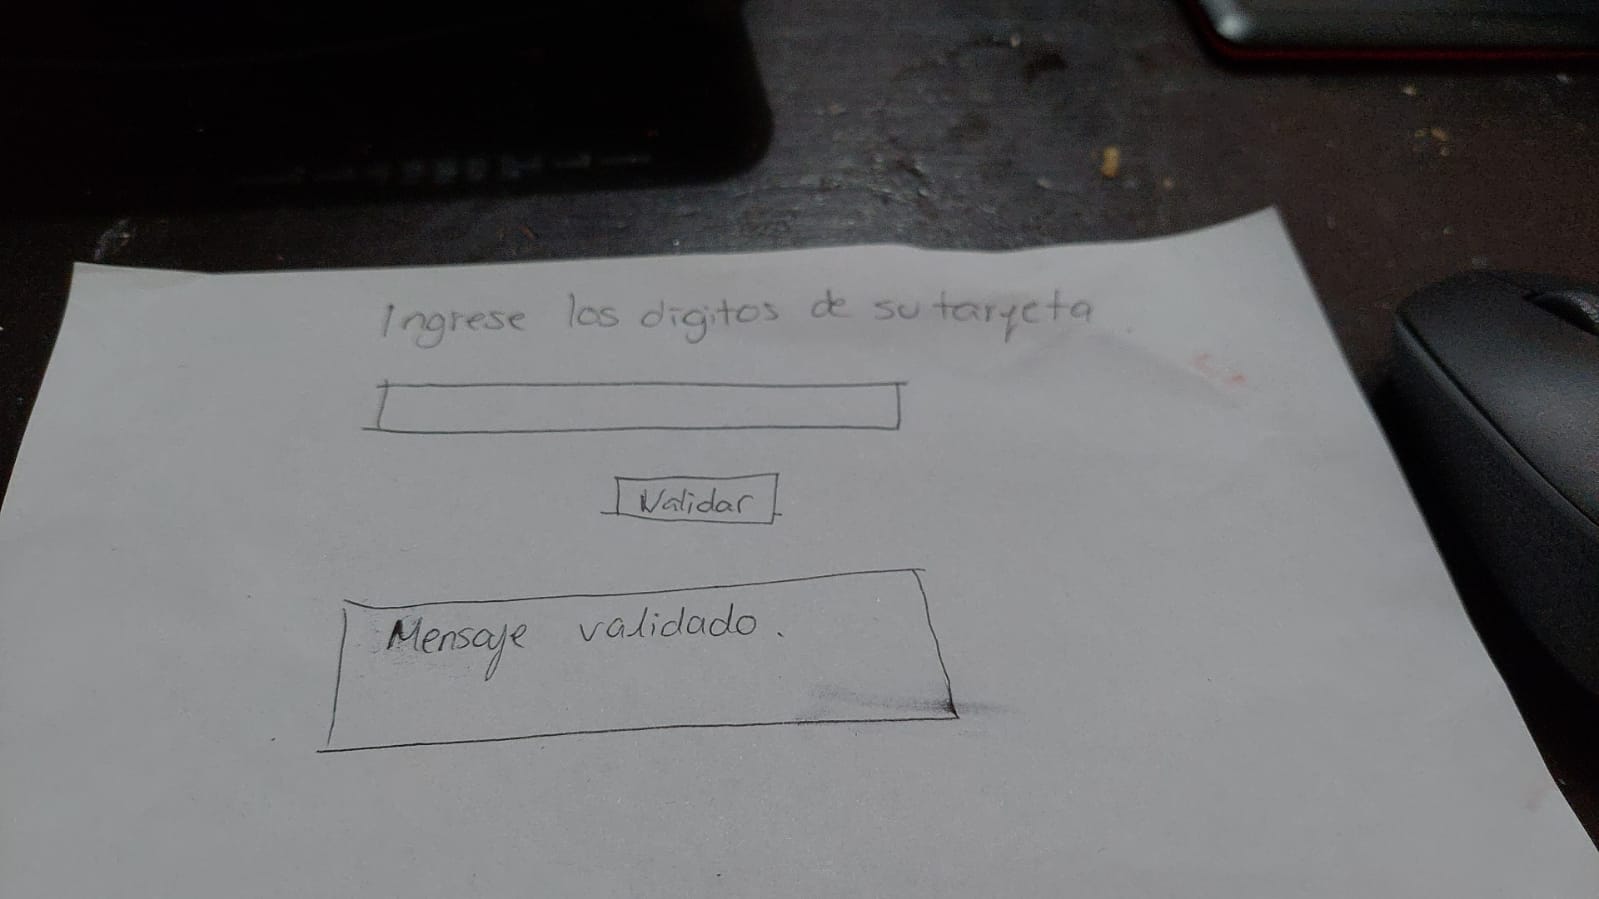 Ingrese los digitos de su tarjeta
Validar
Mensaje validado.